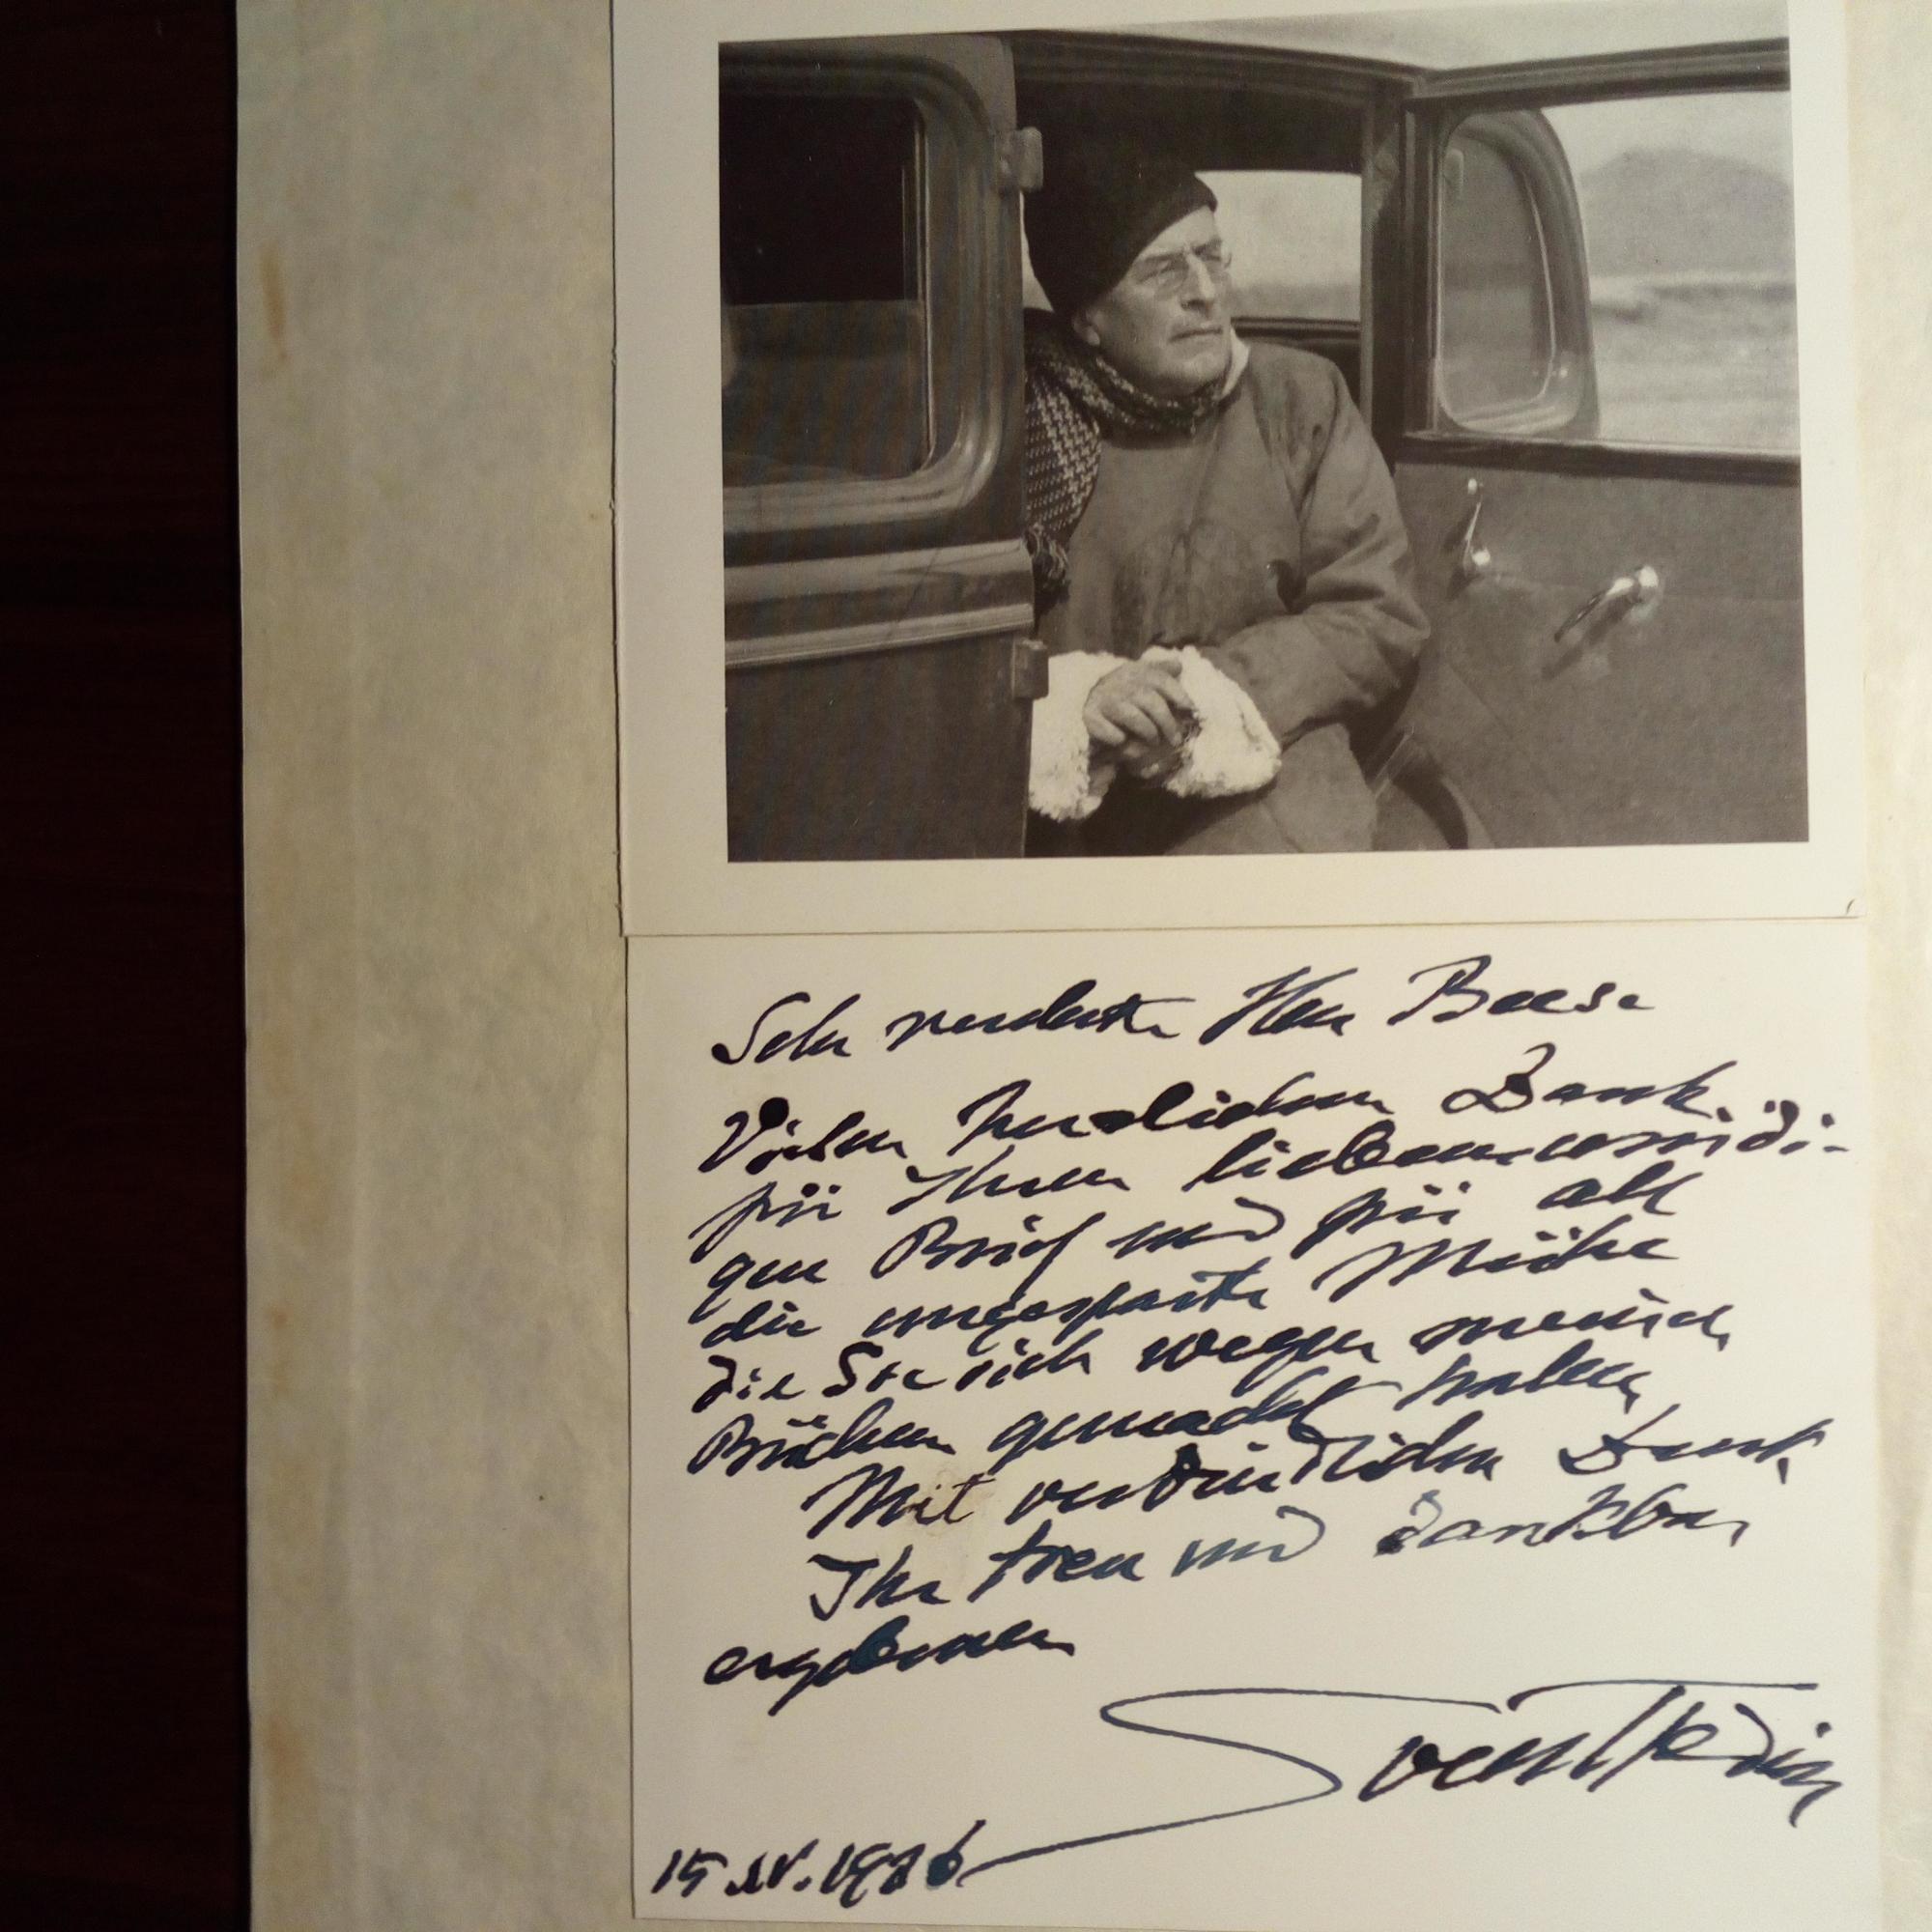 Sehr verehrter Herr Beese
Vielen herzlichen Dank
für Ihren liebenswürdi-
gen Brief und für all
die ungesparte Mühe
die Sie sich wegen meiner
Bücher gemacht haben,
Mit verbindlichem Dank,
Ihr treu und dankbar
ergebener
Sven Hedin
15.IV.1936